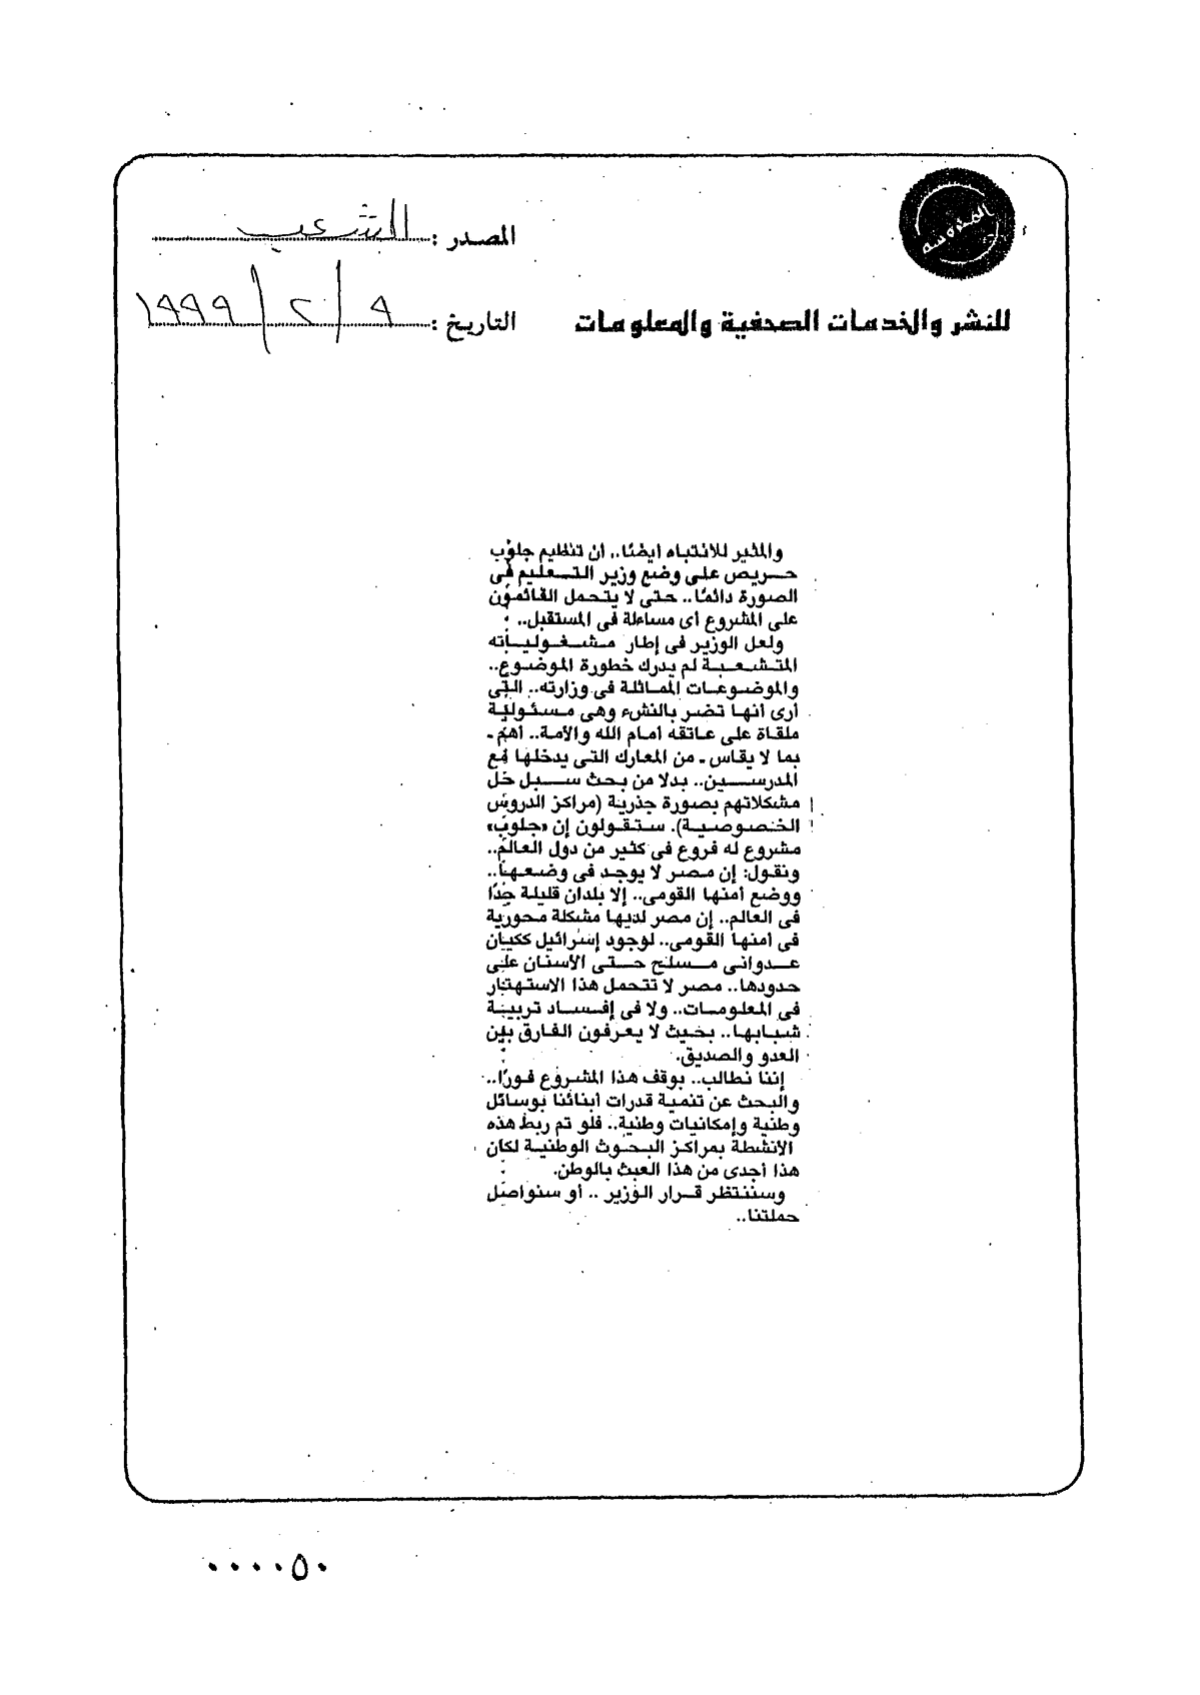 المحروسة
المصدر : الشعب
للنشر والخدمات الصحفية والمعلومات
التاريخ : ٩ / ٢ / ١٩٩٩
والمثير للانتباه ايضًا.. ان تنظيم جلوب
حريص على وضع وزير التعليم فى
الصورة دائمًا.. حتى لا يتحمل القائمون
على المشروع أى مساءلة فى المستقبل..
ولعل الوزير فى إطار مشغولياته
المتشعبة لم يدرك خطورة الموضوع..
والموضوعات المماثلة فى وزارته.. التى
أرى أنها تضر بالنشء وهى مسئولية
ملقاة على عاتقه أمام الله والأمة.. أهم -
بما لا يقاس - من المعارك التى يدخلها مع
المدرسين.. بدلا من بحث سبل حل
مشكلاتهم بصورة جذرية (مراكز الدروس
الخصوصية). ستقولون إن «جلوب»
مشروع له فروع فى كثير من دول العالم..
ونقول: إن مصر لا يوجد فى وضعها..
ووضع أمنها القومى.. إلا بلدان قليلة جدًا
فى العالم.. إن مصر لديها مشكلة محورية
فى أمنها القومى.. لوجود إسرائيل ككيان
عدوانى مسلح حتى الأسنان على
حدودها.. مصر لا تتحمل هذا الاستهتار
فى المعلومات.. ولا فى إفساد تربية
شبابها.. بحيث لا يعرفون الفارق بين
العدو والصديق.
إننا نطالب.. بوقف هذا المشروع فورًا..
والبحث عن تنمية قدرات أبنائنا بوسائل
وطنية وإمكانيات وطنية.. فلو تم ربط هذه
الانشطة بمراكز البحوث الوطنية لكان
هذا أجدى من هذا العبث بالوطن.
وسننتظر قرار الوزير .. أو سنواصل
حملتنا..
٠٠٠٠٥٠